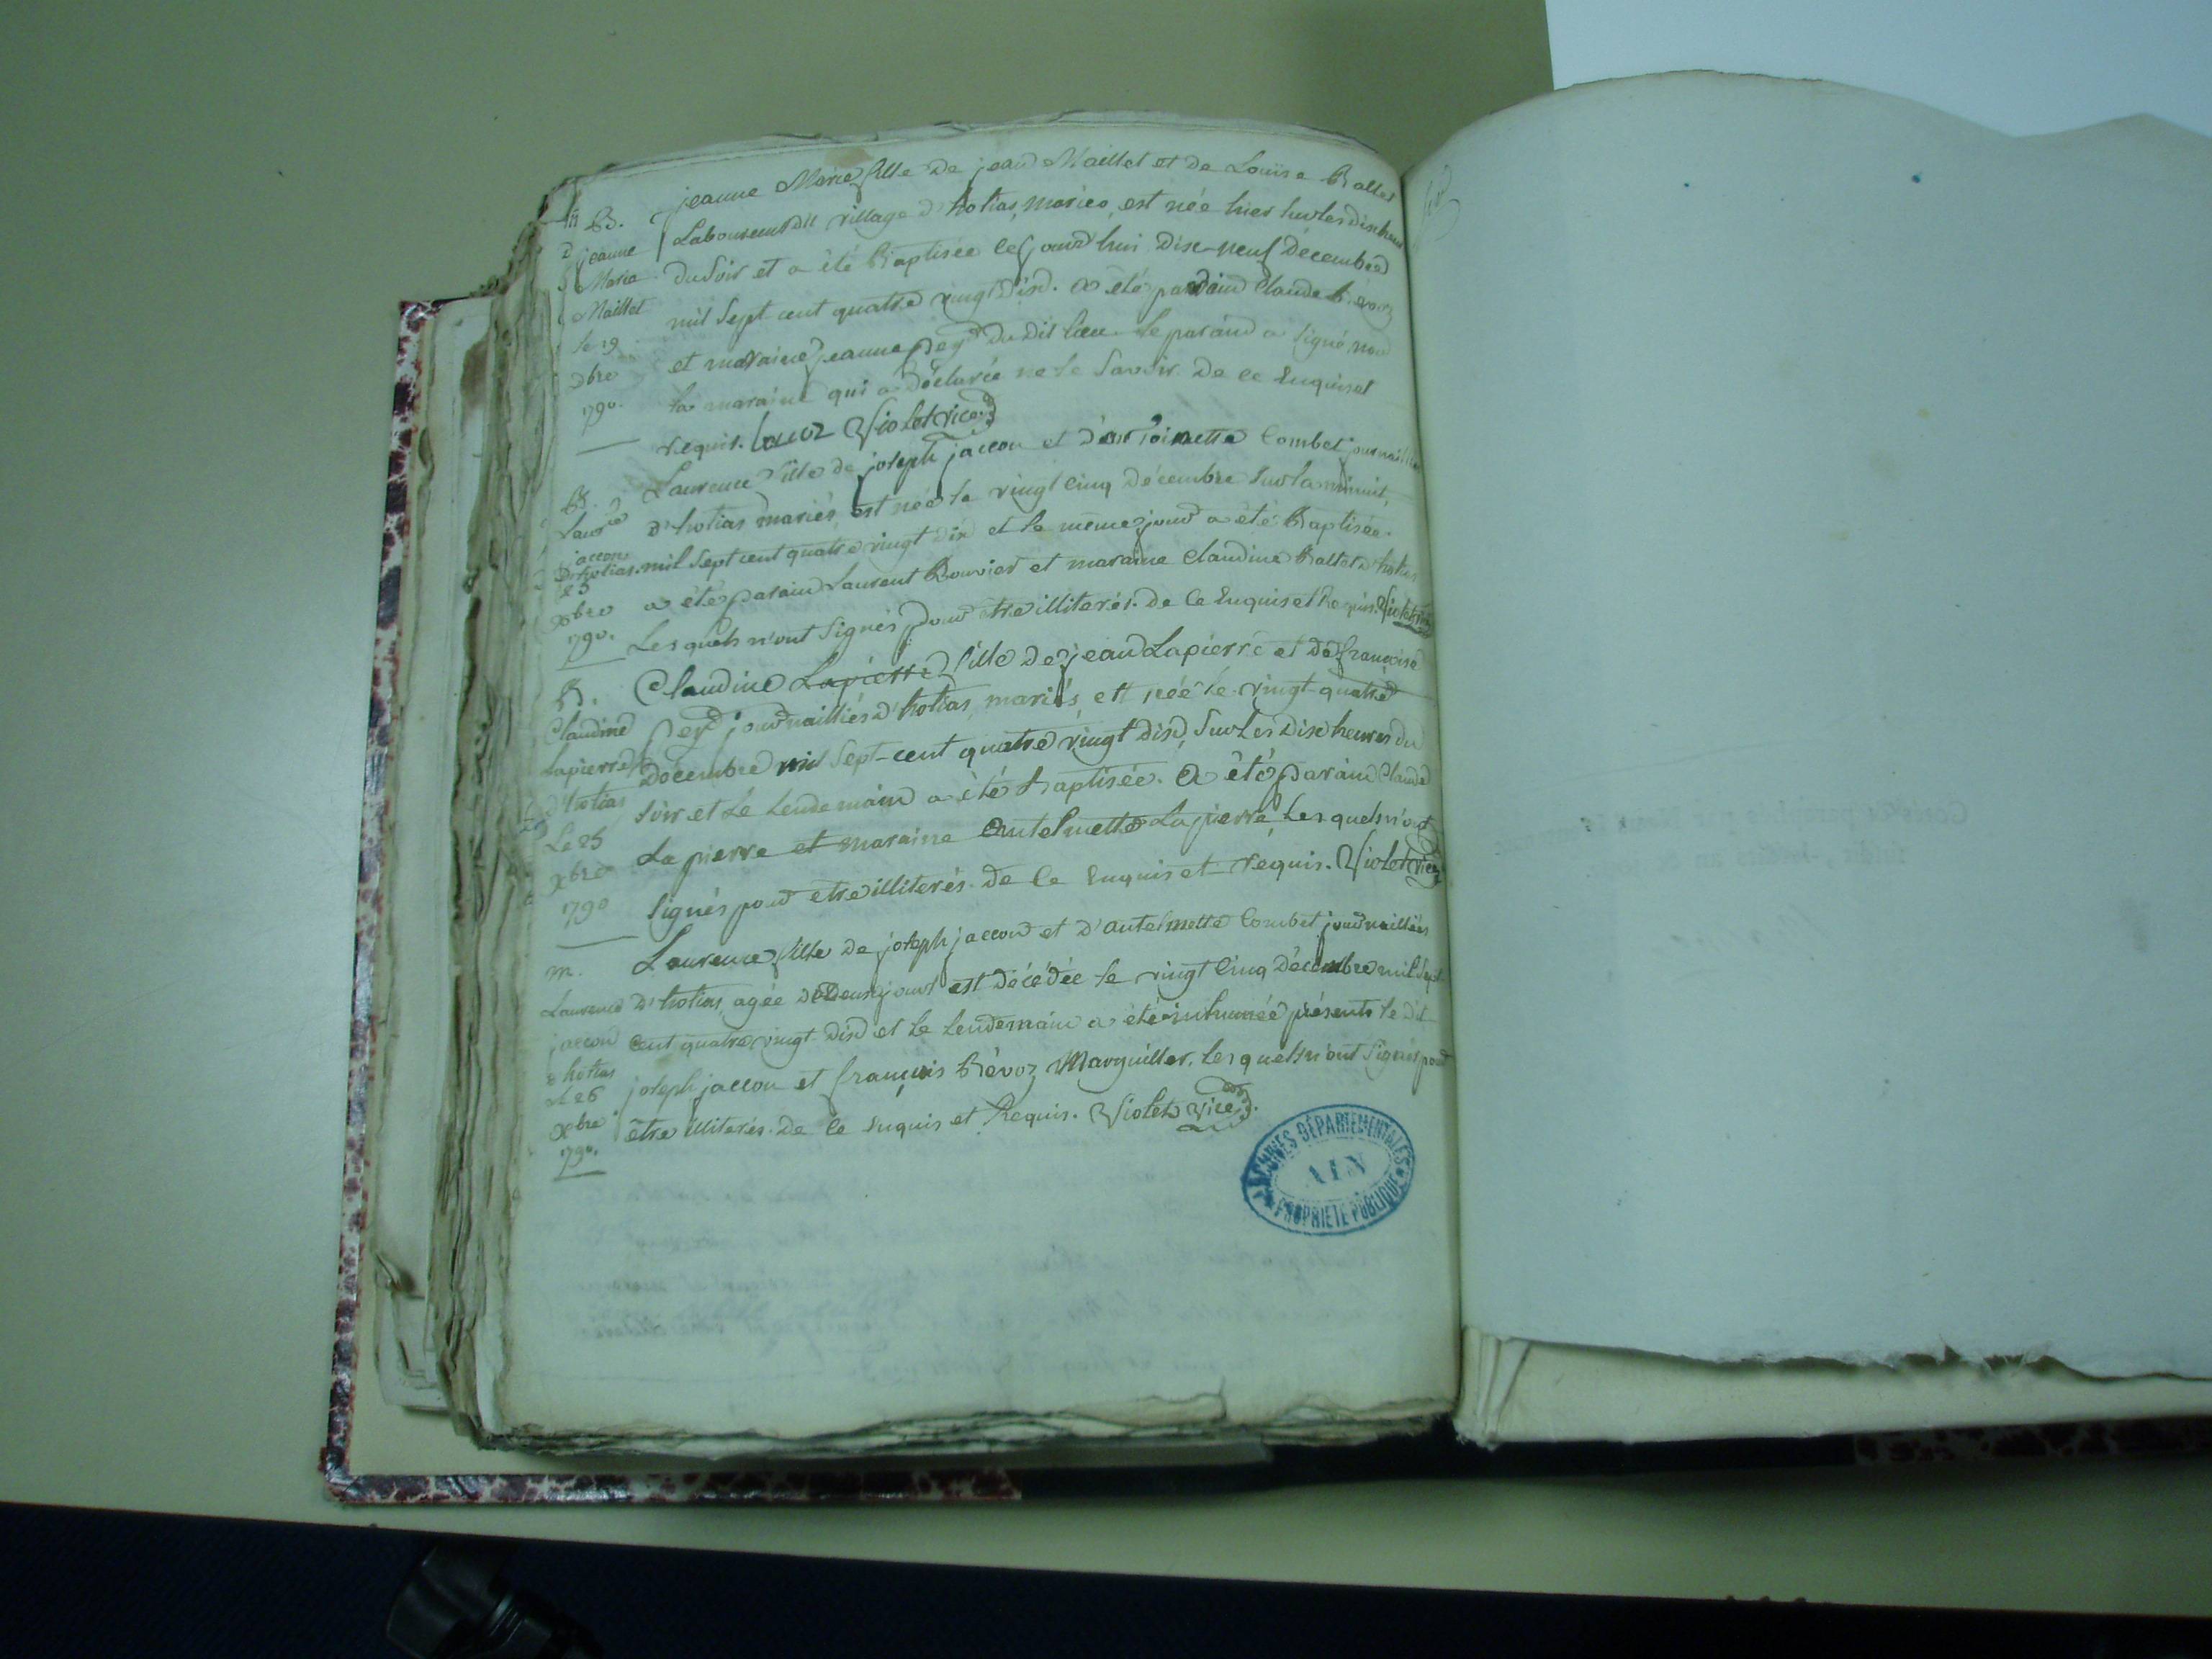 B.
jeanne
Marie
Maillet
le 19
xbre
1790.
jeanne Marie fille de jean Maillet et de Louise Ballet
Laboureurs du village d'hotias, mariés, est née hier sur les dix heures
du soir et a été Baptisée ce jourd'hui dix-neuf décembre
mil sept cent quatre vingt dix. a été parain Claude Bévoz
et maraine jeanne Pey du dit lieu. le parain a signé, non
la maraine qui a déclarée ne le savoir. de ce Enquis et
requis. Bévoz Violet vice
B.
Laurce
jaccou
d'hotias.
25
xbre
1790.
Laurence fille de joseph jaccou et d'antoinette Combet journailliers
d'hotias mariés, est née le vingt cinq décembre sur la minuit,
mil sept cent quatre vingt dix et le même jour a été Baptisée.
a été parain Laurent Bouvier et maraine Claudine Ballet d'hotias
Les quels n'ont signés pour être illiterés. de ce Enquis et Requis. Violet vice
B.
Claudine
Lapierre
d'hotias
Le 25
xbre
1790
Claudine Lapierre fille de jean Lapierre et de françoise
Pey journailliers d'hotias, mariés, est née le vingt-quatre
décembre mil sept-cent quatre vingt dix, sur Les dix heures du
soir et Le Lendemain a été baptisée. a été parain Claude
La pierre et maraine antelmette Lapierre, Les quels n'ont
signés pour etre illiterés. de ce Enquis et requis. Violet vice
m.
Laurence
jaccou
d'hotias
Le 26
xbre
1790.
Laurence fille de joseph jaccou et d'antelmette Combet journailliers
d'hotias, agée de deux jours est décédée le vingt cinq décembre mil sept
cent quatre vingt dix et Le Lendemain a été inhumée présents le dit
joseph jaccou et françois Bévoz Marguiller, Les quels n'ont signés pour
être illiterés. de ce Enquis et Requis. Violet vice
ARCHIVES DÉPARTEMENTALES
AIN
PROPRIÉTÉ PUBLIQUE